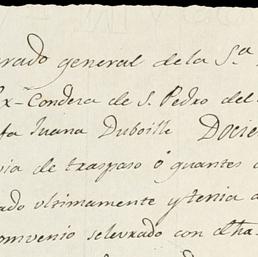 rado general de la S.ª
Ex-Condesa de S. Pedro del
fa Juana Duboille Docie
ia de traspaso o guantes a
ado ultimamente y tenia a
convenio selevrado con dha